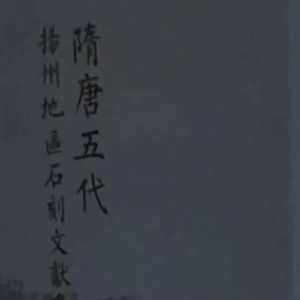 隋唐五代
揚州地區石刻文献